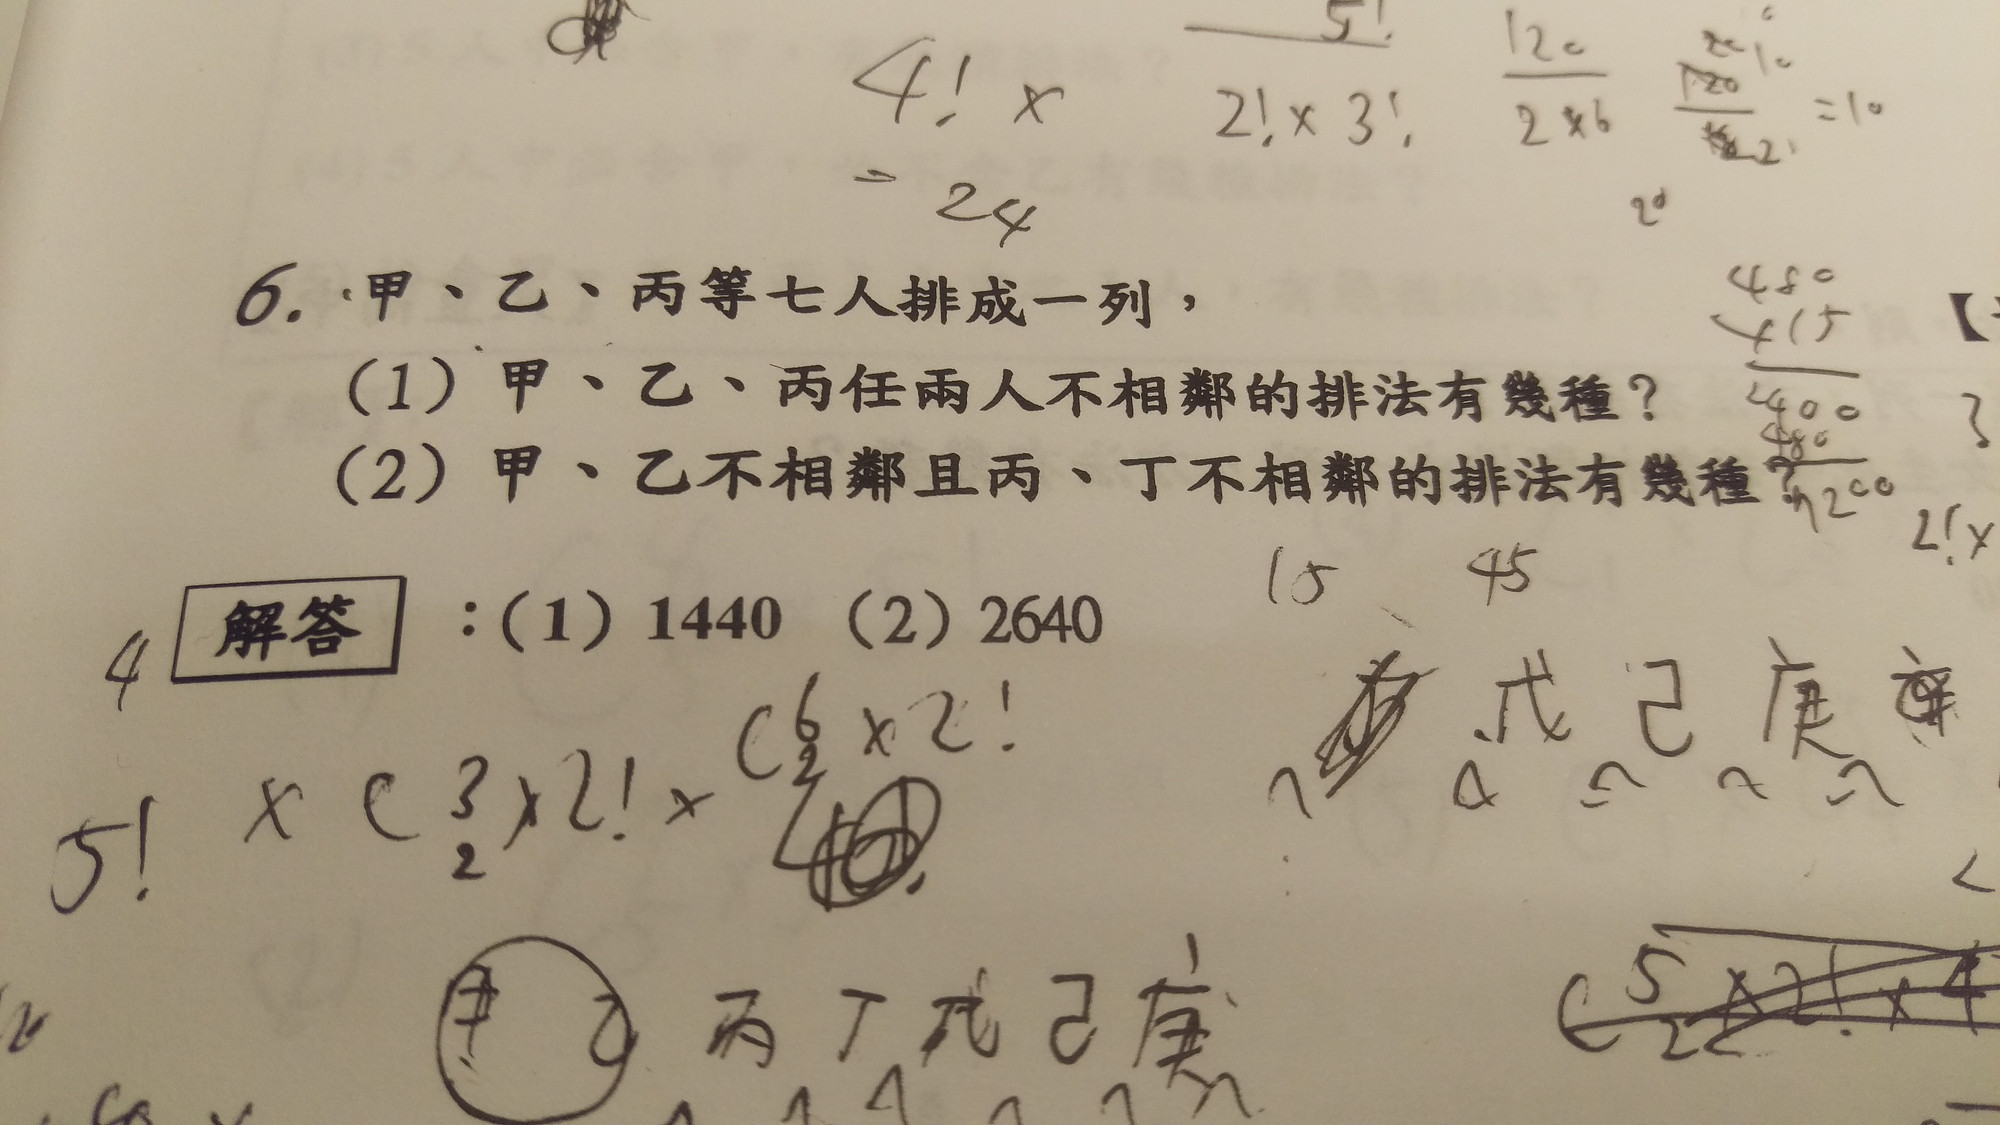 5!
4! x
2! x 3!
120
2 x 6
= 10
= 24
20
6. 甲、乙、丙等七人排成一列，
(1) 甲、乙、丙任兩人不相鄰的排法有幾種？
(2) 甲、乙不相鄰且丙、丁不相鄰的排法有幾種？
480
x 15
2400
480
7200
2! x
15 45
解答：(1) 1440 (2) 2640
4
5! x C 3 2 x 2! x C 6 2 x 2!
戊 己 庚
甲 乙 丙 丁 戊 己 庚
C 5 2 x 2! x 4